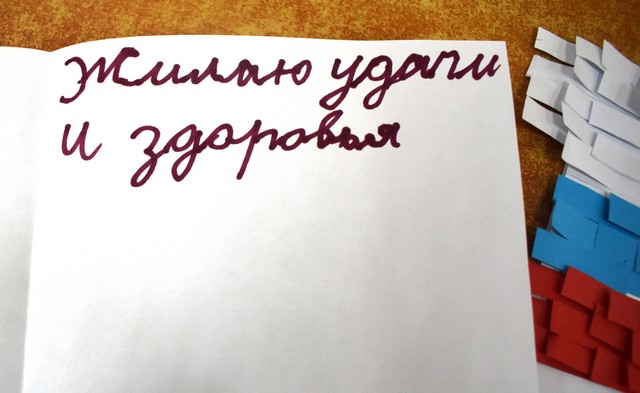 Жилаю удачи
и здоровья